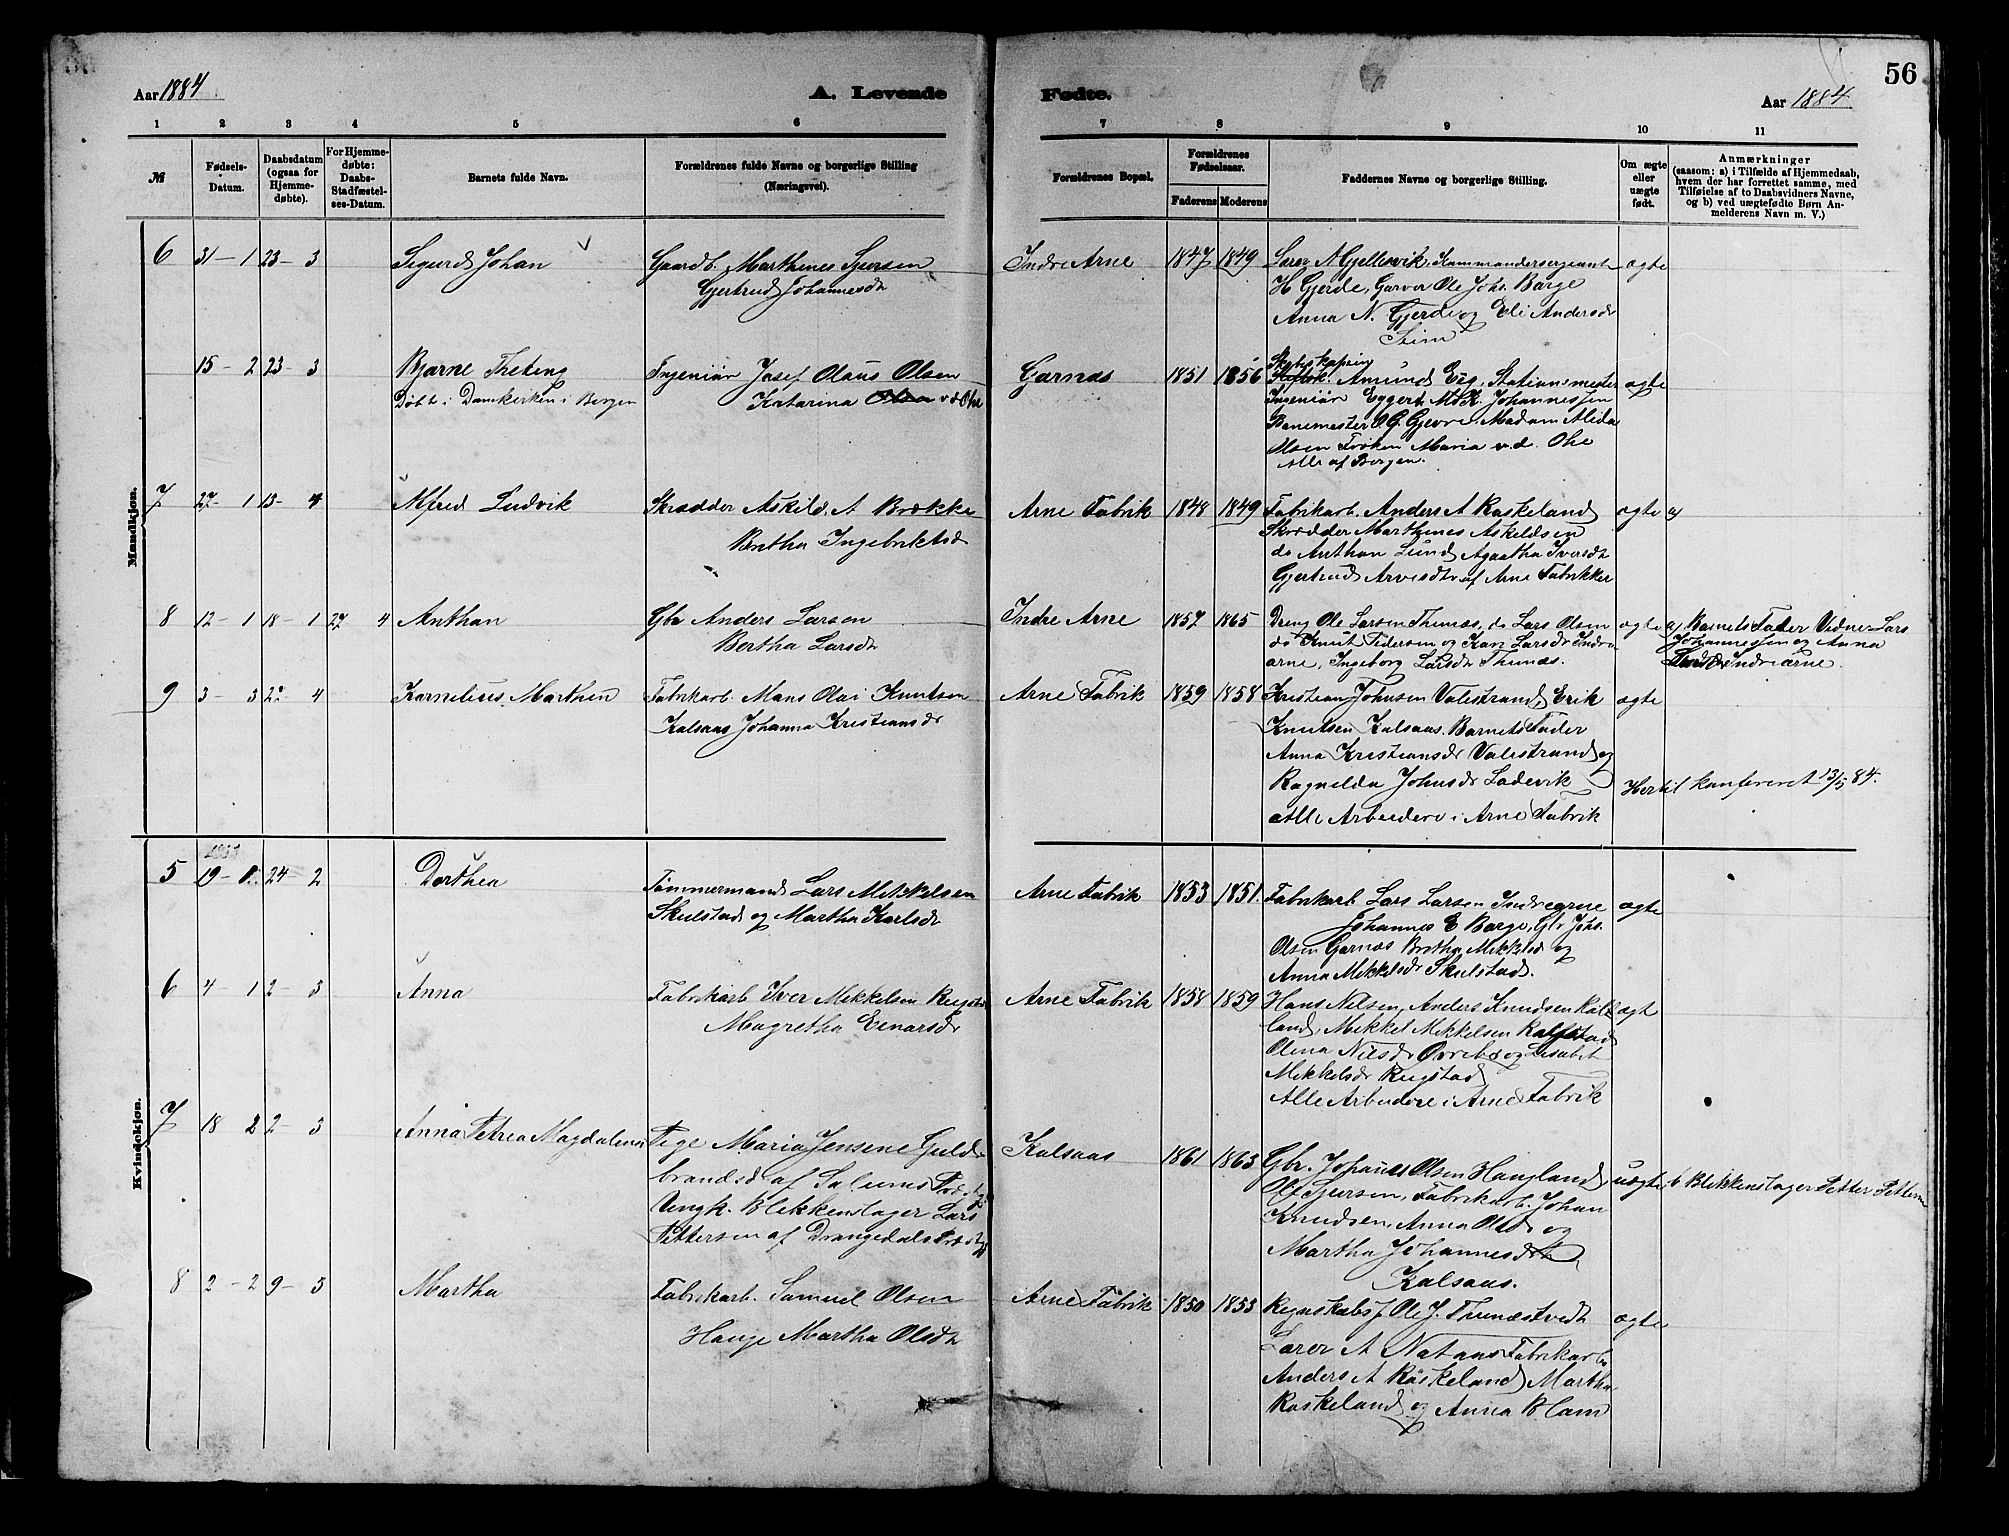 56
Aar 1884
A. Levende
Fødte.
Aar 1884
1 2 3 4 5 6 7 8 9 10 11
№
Fødsels-
Datum.
Daabsdatum
(ogsaa for
Hjemme-
døbte).
For Hjemme-
døbte:
Daabs-
Stadfæstel-
ses-Datum.
Barnets fulde Navn.
Forældrenes fulde Navne og borgerlige Stilling
(Næringsvei).
Forældrenes Bopæl.
Forældrenes
Fødselsaar.
Faderens Moderens
Faddernes Navne og borgerlige Stilling.
Om ægte
eller
uægte
født.
Anmærkninger
(saasom: a) i Tilfælde af Hjemmedaab,
hvem der har forrettet samme, med
Tilføielse af to Daabsvidners Navne,
og b) ved uægtefødte Børn An-
melderens Navn m. V.)
Mandkjøn.
6 31-1 23-3 Sigurd Johan
Gaardb. Marthines Sjursen
Gjertrud Johannesdr
Indre Arne 1847 1849
Lærer A Gjellesvik, Kommandersergeant
H Gjerde, Garver Ole Johs. Barge
Anna N. Gjerde og Eli Andersdr
ægte
15-2 23-3 Bjarne
Døbt i Domkirken i Bergen
Ingeniør Josef Olaus Olsen
Katarina Olsen v d Ohe
Garnæs 1851 1856
Amund Eeg, Stationsmester
Ingeniør Eggert, Johannessen
Banemester O. G. Gjevre, Madam Alida
Olsen Frøken Maria v. d. Ohe
Alle af Bergen.
ægte
7 27-1 13-4 Alfred Ludvik
Skrædder Askild A Brække
Britha Ingebriktsdr
Arne Fabrik 1848 1849
Fabrikarb. Anders A Raskeland
Skrædder Marthines Askeldsen
do Anthon Lund Agaatha Iversdr
Gjertrud Arvesdtr af Arne Fabrikker
ægte a)
8 12-1 18-1 27 4 Anthon
Gbr Anders Larsen
Bertha Larsdr
Indre Arne 1857 1865
Dreng Ole Larsen Thunæs, do Lars Olsen
do Knut Pedersen og Kari Larsdr Indre
arne, Ingeborg Larsdr Thunæs.
ægte a) Barnets Fader Vidner Lars
Johannessen og Anna
Indrearne.
9 3-3 4 Kornelius Marthin
Fabrikarb. Mons Olai Knutsen
Kalsaas Johanna Kristiansdr
Arne Fabrik 1859 1858
Kristian Johnsen Valestrand, Erik
Knutsen Kalsaas. Barnets Fader
Anna Kristiansdr Valestrand og
Ragnilda Johnsdr Ladevik
Alle Arbeidere i Arne Fabrik
ægte
Hertil konfereret 13/5 84.
Kvindekjøn.
5 19- 24-2 Dorthea
Tømmermand Lars Mikkelsen
Skulstad og Martha Karlsdr
Arne Fabrik 1853 1851.
Fabrikarb Lars Larsen Indrearne
Johannes E Barge, Gbr Johs.
Olsen Garnæs Britha Mikkelsd og
Anna Mikkelsdr Skulstad.
ægte
6 4-1 2-3 Anna
Fabrikarb Iver Mikkelsen Rugstad
Magretha Einarsdr
Arne Fabrik 1858 1859
Hans Nilsen, Anders Knudsen
land, Mikkel Mikkelsen
Olina Nilsdr Ovrebø og Lisabet
Mikkelsdr Rugstad
Alle Arbeidere i Arne Fabrik
ægt
7 18 2 2-3 Anna Petrea Magdalena
Pige Maria Jensene Guld-
brandsd af Solums Præstgj.
Ungk. Blikkenslager Lars
Pettersen af Drangedals Præstgj
Kalsaas 1861 1863
Gbr. Johanes Olsen Haugland,
Ole Sjursen, Fabrikarb. Johan
Knudsen, Anna Olsdr og
Martha Johannesdtr
Kalsaas.
uægte b Blikkenslager Petter Pettersen
8 2-2 9-3 Martha
Fabrikarb. Samuel Olsen
Hauge Martha Olsdtr
Arne Fabrik 1850 1853
Regnskabsf Ole J. Thunæstvedt
Lærer A Nataas Fabrikarb
Anders A Raskeland Martha
Raskeland og Anna Blom
ægte